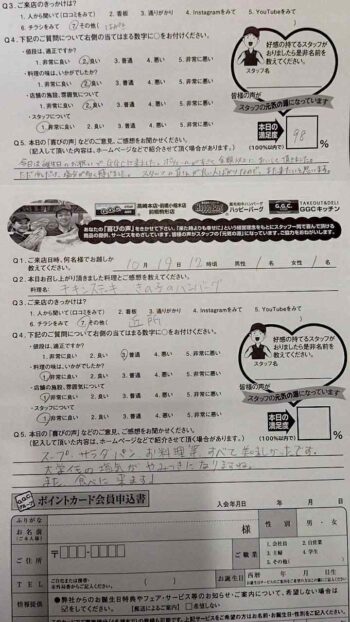 Q3.ご来店のきっかけは?
1.人から聞いて(口コミをみて) 2.看板 3.通りがかり 4.Instagramをみて 5.YouTubeをみて
6.チラシをみて ⑦その他( )
Q4.下記のご質問について右側の当てはまる数字に○をお付けください。
・値段は、適正ですか?
1.非常に良い ②良い 3.普通 4.悪い 5.非常に悪い
・料理の味は、いかがでしたか?
1.非常に良い ②良い 3.普通 4.悪い 5.非常に悪い
・店舗の施設、雰囲気について
1.非常に良い ②良い 3.普通 4.悪い 5.非常に悪い
・スタッフについて
①非常に良い 2.良い 3.普通 4.悪い 5.非常に悪い
好感の持てるスタッフが
おりましたら是非名前を
教えてください。
スタッフ名
皆様の声が
スタッフの元気の源になっています
本日の
満足度
(100%以内で)
98
%
Q5.本日の「喜びの声」などのご意見、ご感想をお聞かせください。
(記入して頂いた内容は、ホームページなどで紹介させて頂く場合があります。)
高崎本店・前橋小相木店
前橋駒形店
ハッピーバーグ
G.G.C.
TAKEOUT&DELI
GGCキッチン
あなたの「喜びの声」をきかせて下さい。「来た時よりも幸せに」という経営理念をもとにスタッフ一同で喜んで頂ける
商品の提供、サービスをめざしています。皆様の声がスタッフの「元気の源」になっています。ご協力をおねがいします。
Q1.ご来店日時、何名様でお越しか
教えてください。
10月19日12時頃 男性 1名 女性 1名
Q2.本日お召し上がり頂きました料理とご感想を教えてください。
料理名: チキンステーキ きのこのハンバーグ
Q3.ご来店のきっかけは?
1.人から聞いて(口コミをみて) 2.看板 3.通りがかり 4.Instagramをみて 5.YouTubeをみて
6.チラシをみて ⑦その他( 近所 )
Q4.下記のご質問について右側の当てはまる数字に○をお付けください。
・値段は、適正ですか?
1.非常に良い 2.良い ③普通 4.悪い 5.非常に悪い
・料理の味は、いかがでしたか?
①非常に良い 2.良い 3.普通 4.悪い 5.非常に悪い
・店舗の施設、雰囲気について
①非常に良い 2.良い 3.普通 4.悪い 5.非常に悪い
・スタッフについて
①非常に良い 2.良い 3.普通 4.悪い 5.非常に悪い
好感の持てるスタッフが
おりましたら是非名前を
教えてください。
スタッフ名
皆様の声が
スタッフの元気の源になっています
本日の
満足度
(100%以内で)
%
Q5.本日の「喜びの声」などのご意見、ご感想をお聞かせください。
(記入して頂いた内容は、ホームページなどで紹介させて頂く場合があります。)
スープ、サラダ、パン お料理等 すべて美味しかったです。
また 食べに来ます!
G.G.C.グループ ポイントカード会員申込書
入会年月日 年 月 日
ふりがな
お名前
(ご本人様)
様
性別
男・女
ご住所
〒
ご職業
1.会社員 2.自営業
3.主婦 4.学生
5.その他( )
TEL
ご自宅または携帯
お誕生日
西暦 年 月 日
情報提供
●弊社からのお誕生日特典やフェア・サービス等のお知らせ・ご案内について、希望しない場合は
☑をしてください。【郵送によるご案内】□希望しない